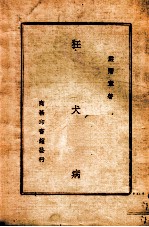 著
狂犬病
商務印書館發行